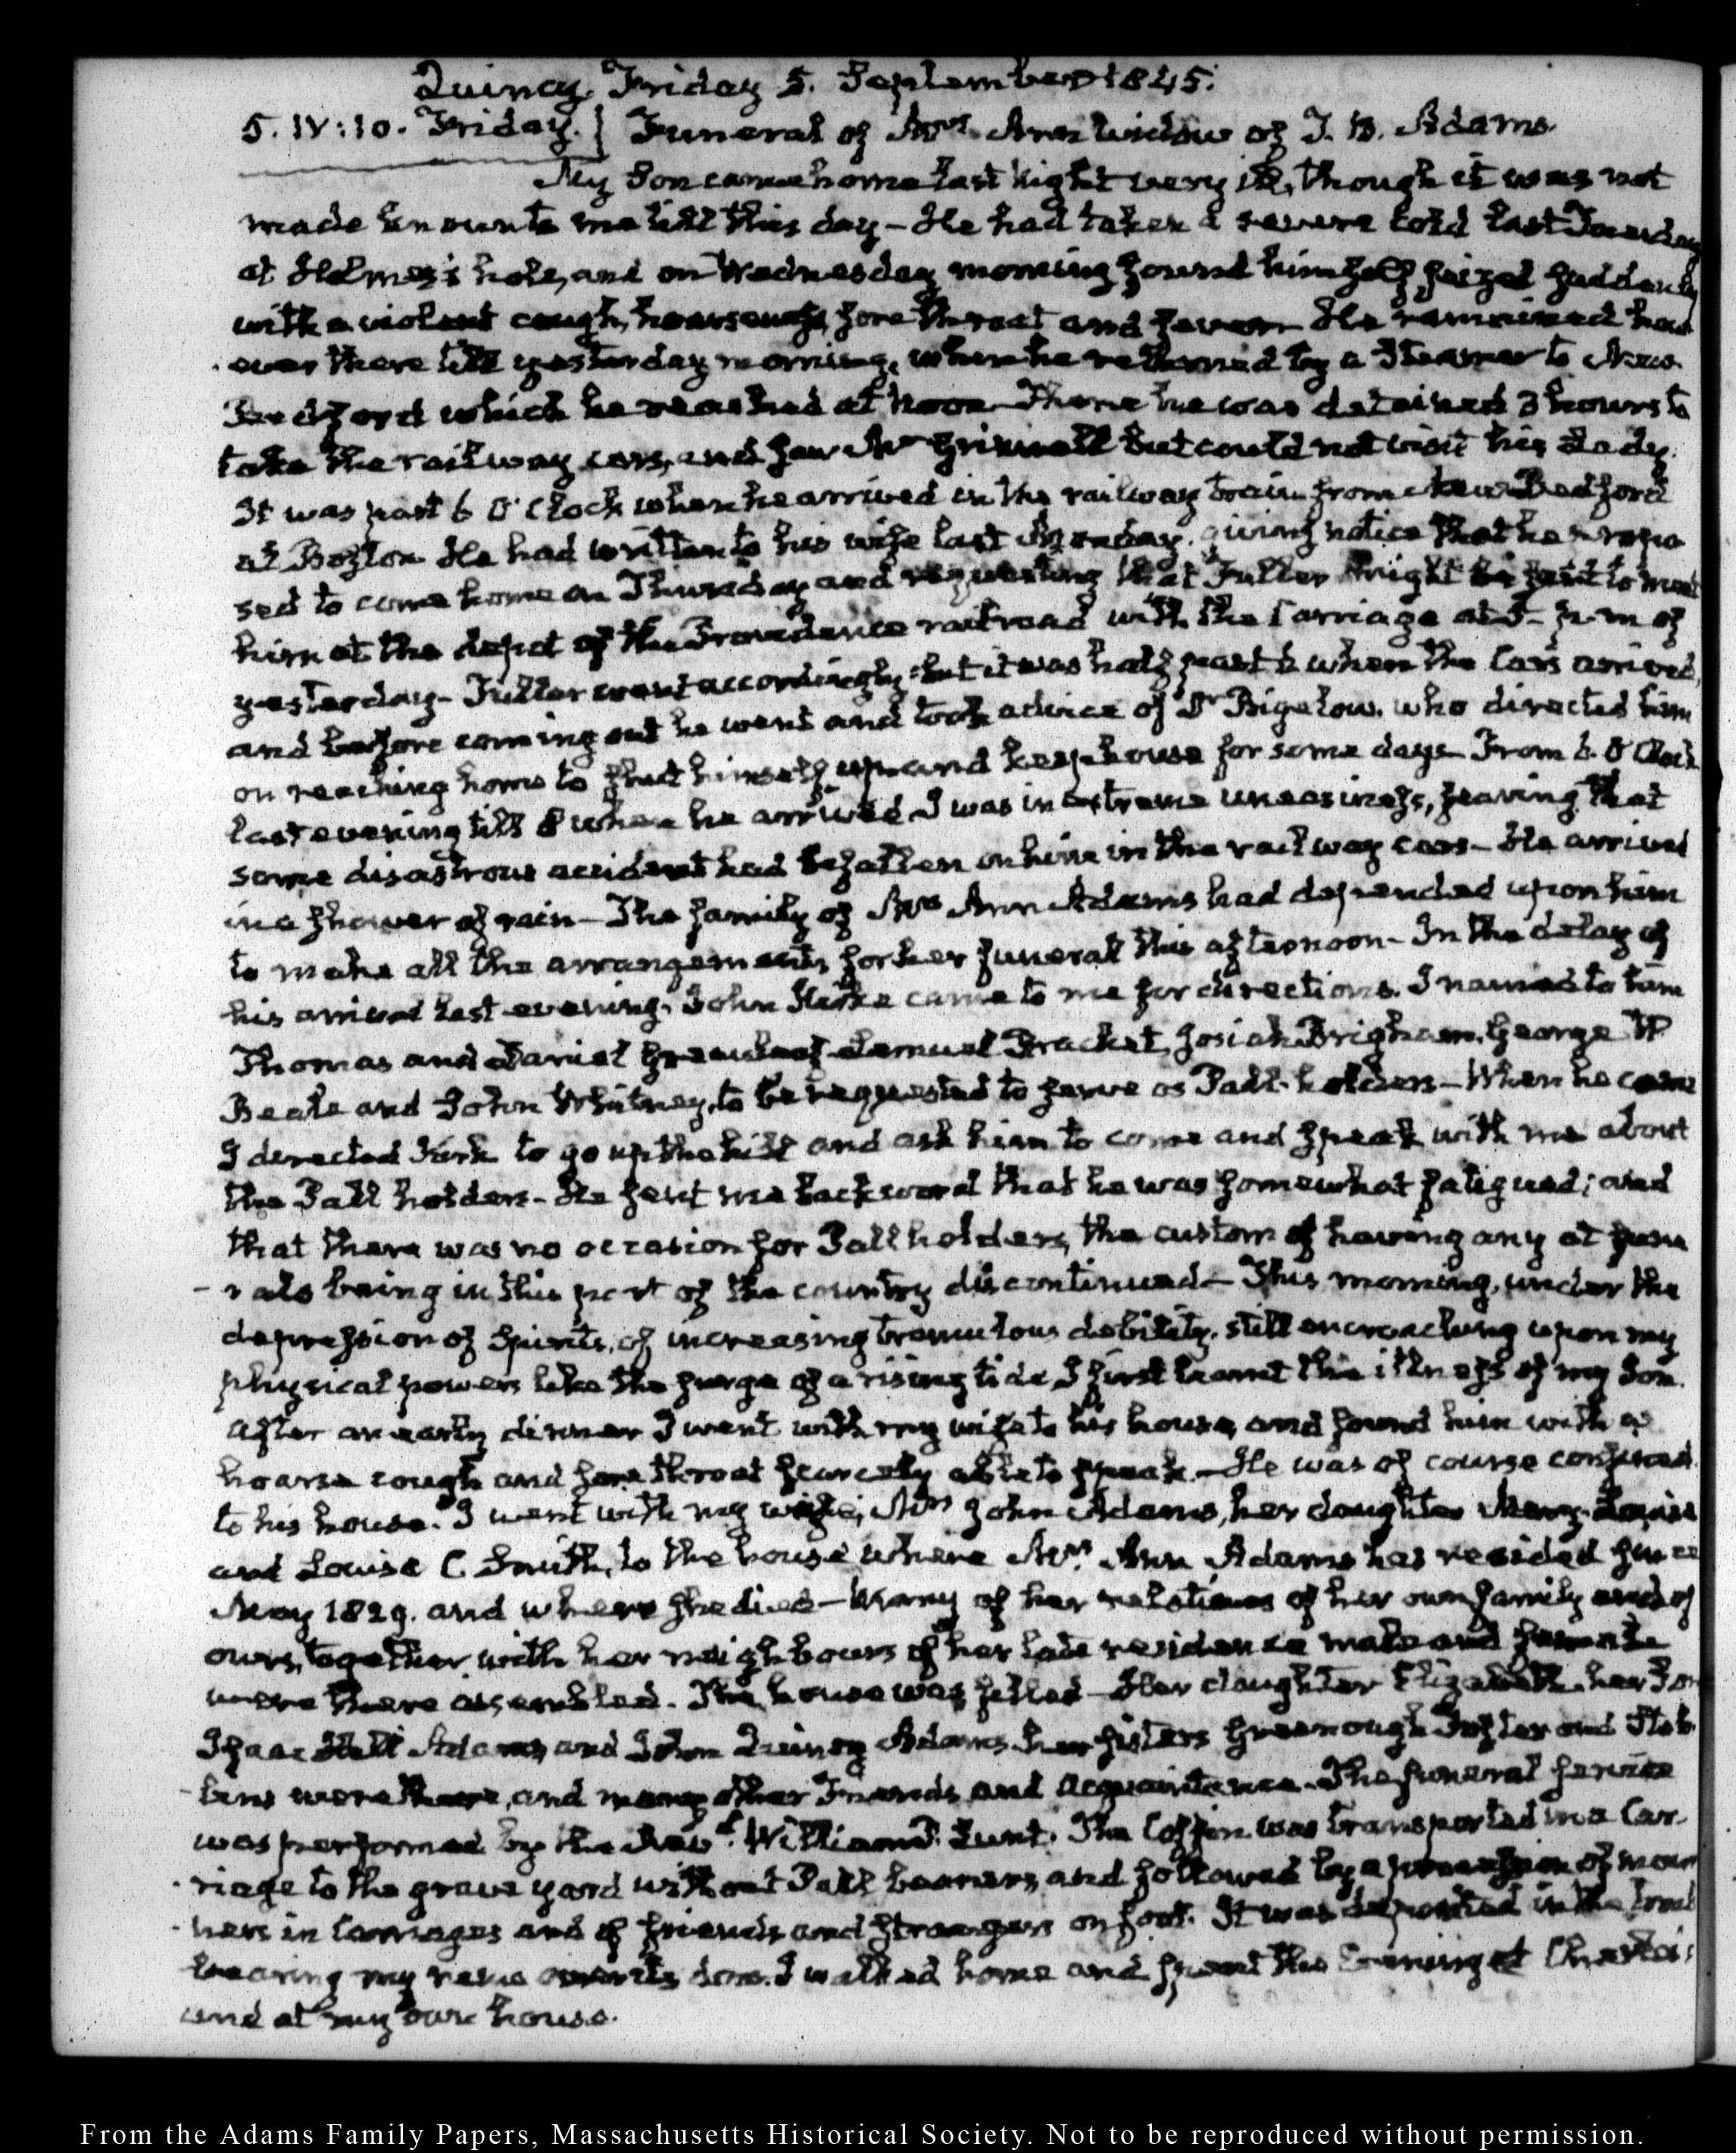 Quincy. Friday 5. September 1845.
5. IV:10. Friday. } Funeral of Mrs. Ann widow of T. B. Adams.
My Son came home last night very ill, though it was not
made known to me till this day – He had taken a severe cold last Tuesday
at Holmes's hole, and on Wednesday morning found himself seized suddenly
with a violent cough, hoarseness, sore throat and fever – He remained how
ever there till yesterday morning, when he returned by a Steamer to New
Bedford which he reached at noon – There he was detained 3 hours to
take the railway cars, and saw Mr Grinnell but could not visit his Lady.
It was past 6 O'Clock when he arrived in the railway train from New Bedford
at Boston. He had written to his wife last Monday, giving notice that he propo
sed to come home on Thursday and requesting that Fuller might be sent to meet
him at the depot of the Providence railroad with the Carriage at 5. p.m of
yesterday – Fuller went accordingly; but it was half past 6 when the Cars arrived,
and before coming out he went and took advice of Dr Bigelow, who directed him
on reaching home to shut himself up and keep house for some days – From 6. O'Clock
last evening till 8 when he arrived I was in extreme uneasiness, fearing that
some disastrous accident had befallen in the railway cars – He arrived
in a shower of rain – The family of Mrs Ann Adams had depended upon him
to make all the arrangements for her funeral this afternoon – In the delay of
his arrival last evening, John Kirke came to me for directions. I named to him
Thomas and Daniel Greenleaf Lemuel Bracket, Josiah Brigham, George W
Beale and John Whitney, to be requested to serve as Pall-holders – When he came
I directed Kirk to go up the hill and ask him to come and speak with me about
the Pall holders – He sent me back word that he was somewhat fatigued; and
that there was no occasion for Pall holders, the custom of having any at fune
- rals being in this part of the country discontinued – This morning, under the
depression of Spirits, of increasing tremulous debility, still encroaching upon my
physical powers like the surge of a rising tide I first learnt the illness of my Son.
After an early dinner I went with my wife to his house, and found him with a
hoarse cough and sore throat scarcely able to speak. – He was of course confined
to his house. I went with my wife, Mrs John Adams, her daughter Mary-Louisa
and Louisa C. Smith, to the house where Mrs. Ann Adams has resided since
May 1829. and where she died – Many of her relations of her own family and of
ours, together with her neighbours of her late residence male and female
were there assembled. The house was filled – Her daughter Elizabeth, her Son
Isaac Hull Adams, and John Quincy Adams, her sisters Greenough Foster and Steb
- bins were there, and many other Friends and acquaintance. The funeral service
was performed by the Revd. William P. Lunt. The Coffin was transported in a Car-
- riage to the grave yard without Pall bearers, and followed by a procession of mour
- ners in Carriages and of friends and strangers on foot. It was deposited in the tomb
bearing my name over its door. I walked home and spent the Evening at Charles's
and at my own house.
From the Adams Family Papers, Massachusetts Historical Society. Not to be reproduced without permission.